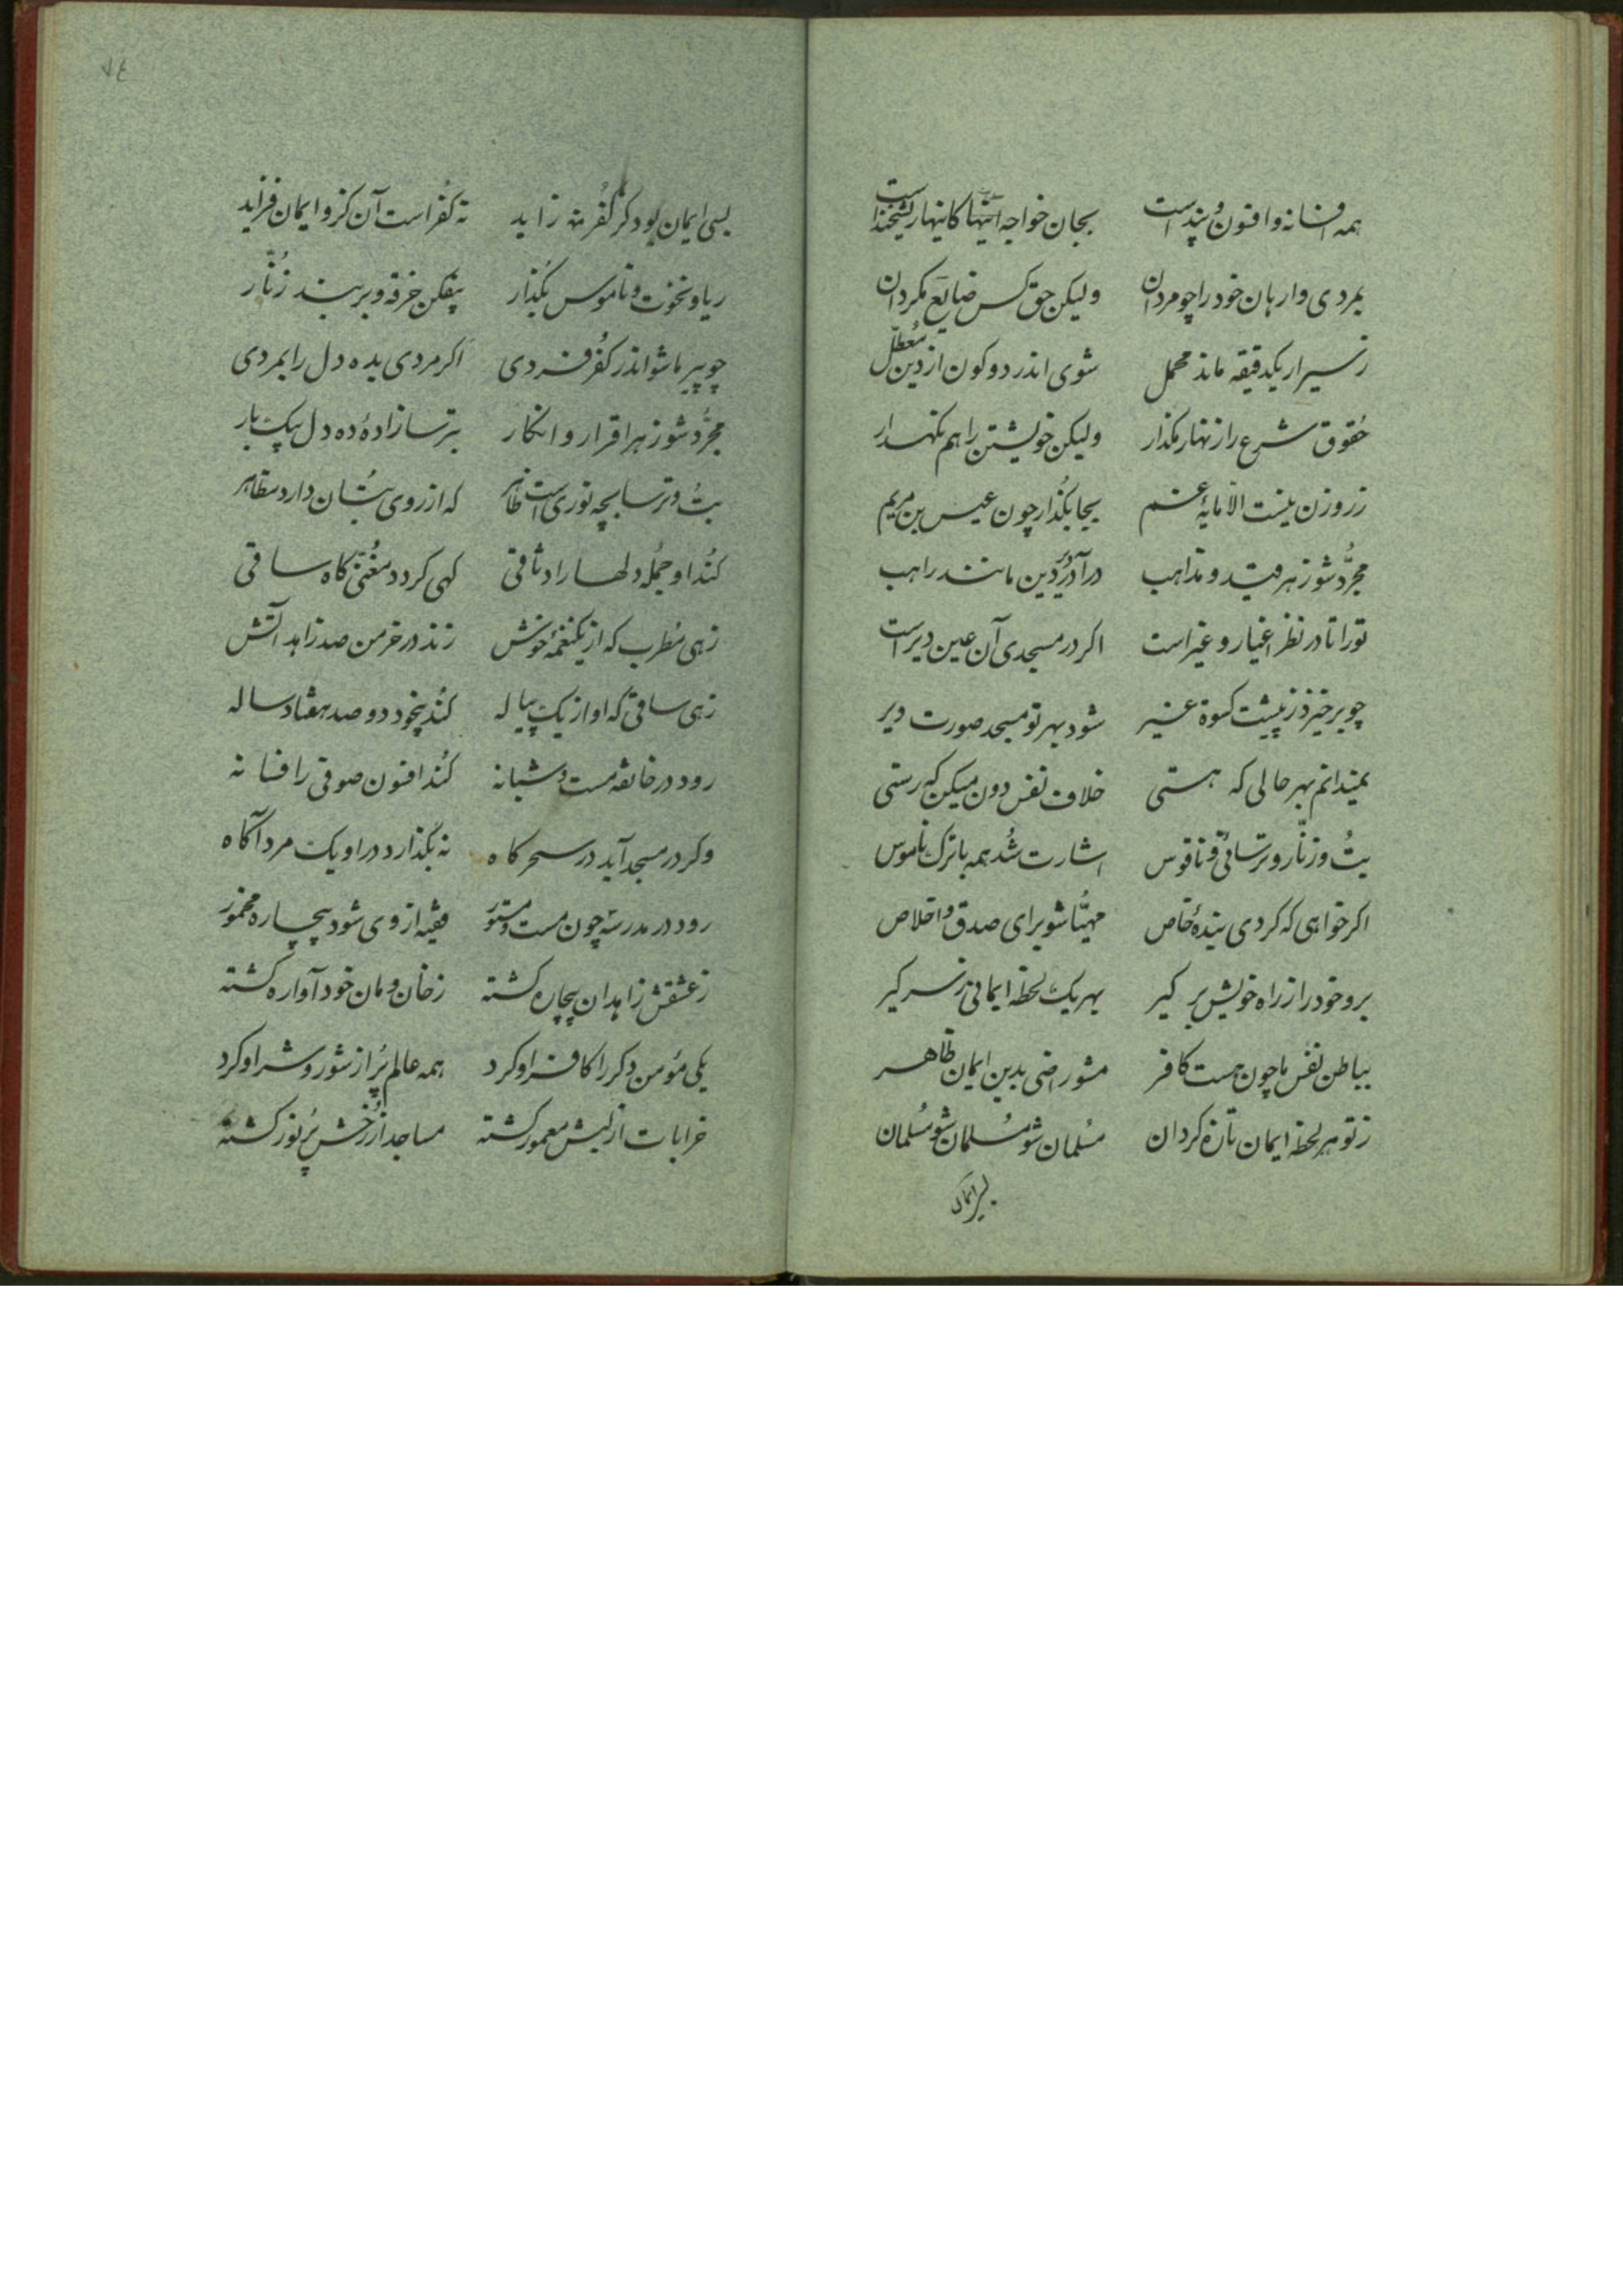 همه افسانه و افسون و پند است بجان خواجه اینها کاینها ریشخند است
بمردی وارهان خود را چو مردان ولیکن حق کس ضایع مگردان
ز سیر ار یکدقیقه ماند مهمل شوی اندر دو کون از دین معطّل
حُقوق شرع را زنهار مگذار ولیکن خویشتن را هم نگهدار
زر و زن نیست الا مایهٔ غم بجا بگذار چون عیسی بن مریم
مجرُّد شو ز هر قید و مذاهب درآ در دیر دین مانند راهب
تو را تا در نظر اغیار و غیر است اگر در مسجدی آن عین دیر است
چو برخیزد ز پیشت کسوة غیر شود بهر تو مسجد صورت دیر
نمیدانم بهر حالی که هستی خلاف نفس دون میکن که رستی
بتُ و زنّار و ترسائی و ناقوس اشارت شُد همه با ترک ناموس
اکر خواهی که کردی بندهٔ خاص مهیّا شو برای صدق و اخلاص
برو خود را ز راه خویش بر کیر بهر یک لحظه ایمانی ز سر کیر
بباطن نفس ما چون هست کافر مشو راضی بدین ایمان ظاهر
ز تو هر لحظه ایمان تازه کردان مُسلمان شو مُسلمان شو مُسلمان
بسی ایمان
٧٤
بسی ایمان بود کز کُفر زاید نه کُفر است آن کزو ایمان فزاید
ریا و نخوت و ناموس بگذار بیفکن خرقه و بر بند زُنّار
چو پیر ما شو اندر کُفر فردی اکر مردی بده دل را بمردی
مجرُّد شو ز هر اقرار و انکار بترسا زادهٔ ده دل بیک بار
بتُ و ترسا بچه نوری است ظاهر که از روی بتُان دارد مظاهر
کُند او جمُله دلها را وثاقی کهی کردد مُغنّی کاه ساقی
زهی مُطرب که از یک نغمهٔ خوش زند در خرمن صد زاهد آتش
زهی ساقی که او از یک پیاله کُند بیخود دو صد هفتاد ساله
رود در خانقه مست و شبانه کُند افسون صوفی را فسانه
وکر در مسجد آید در سحرکاه نه بگذارد در او یک مرد آگاه
رود در مدرسه چون مست و مستور فقیه از وی شود بیچاره مخمور
ز عشقش زاهدان بیچاره کشته ز خان و مان خود آواره کشته
یکی مؤمن دکر را کافر او کرد همه عالم پُر از شور و شر او کرد
خرابات از لبش معمور کشته مساجد از رُخش پُر نور کشته